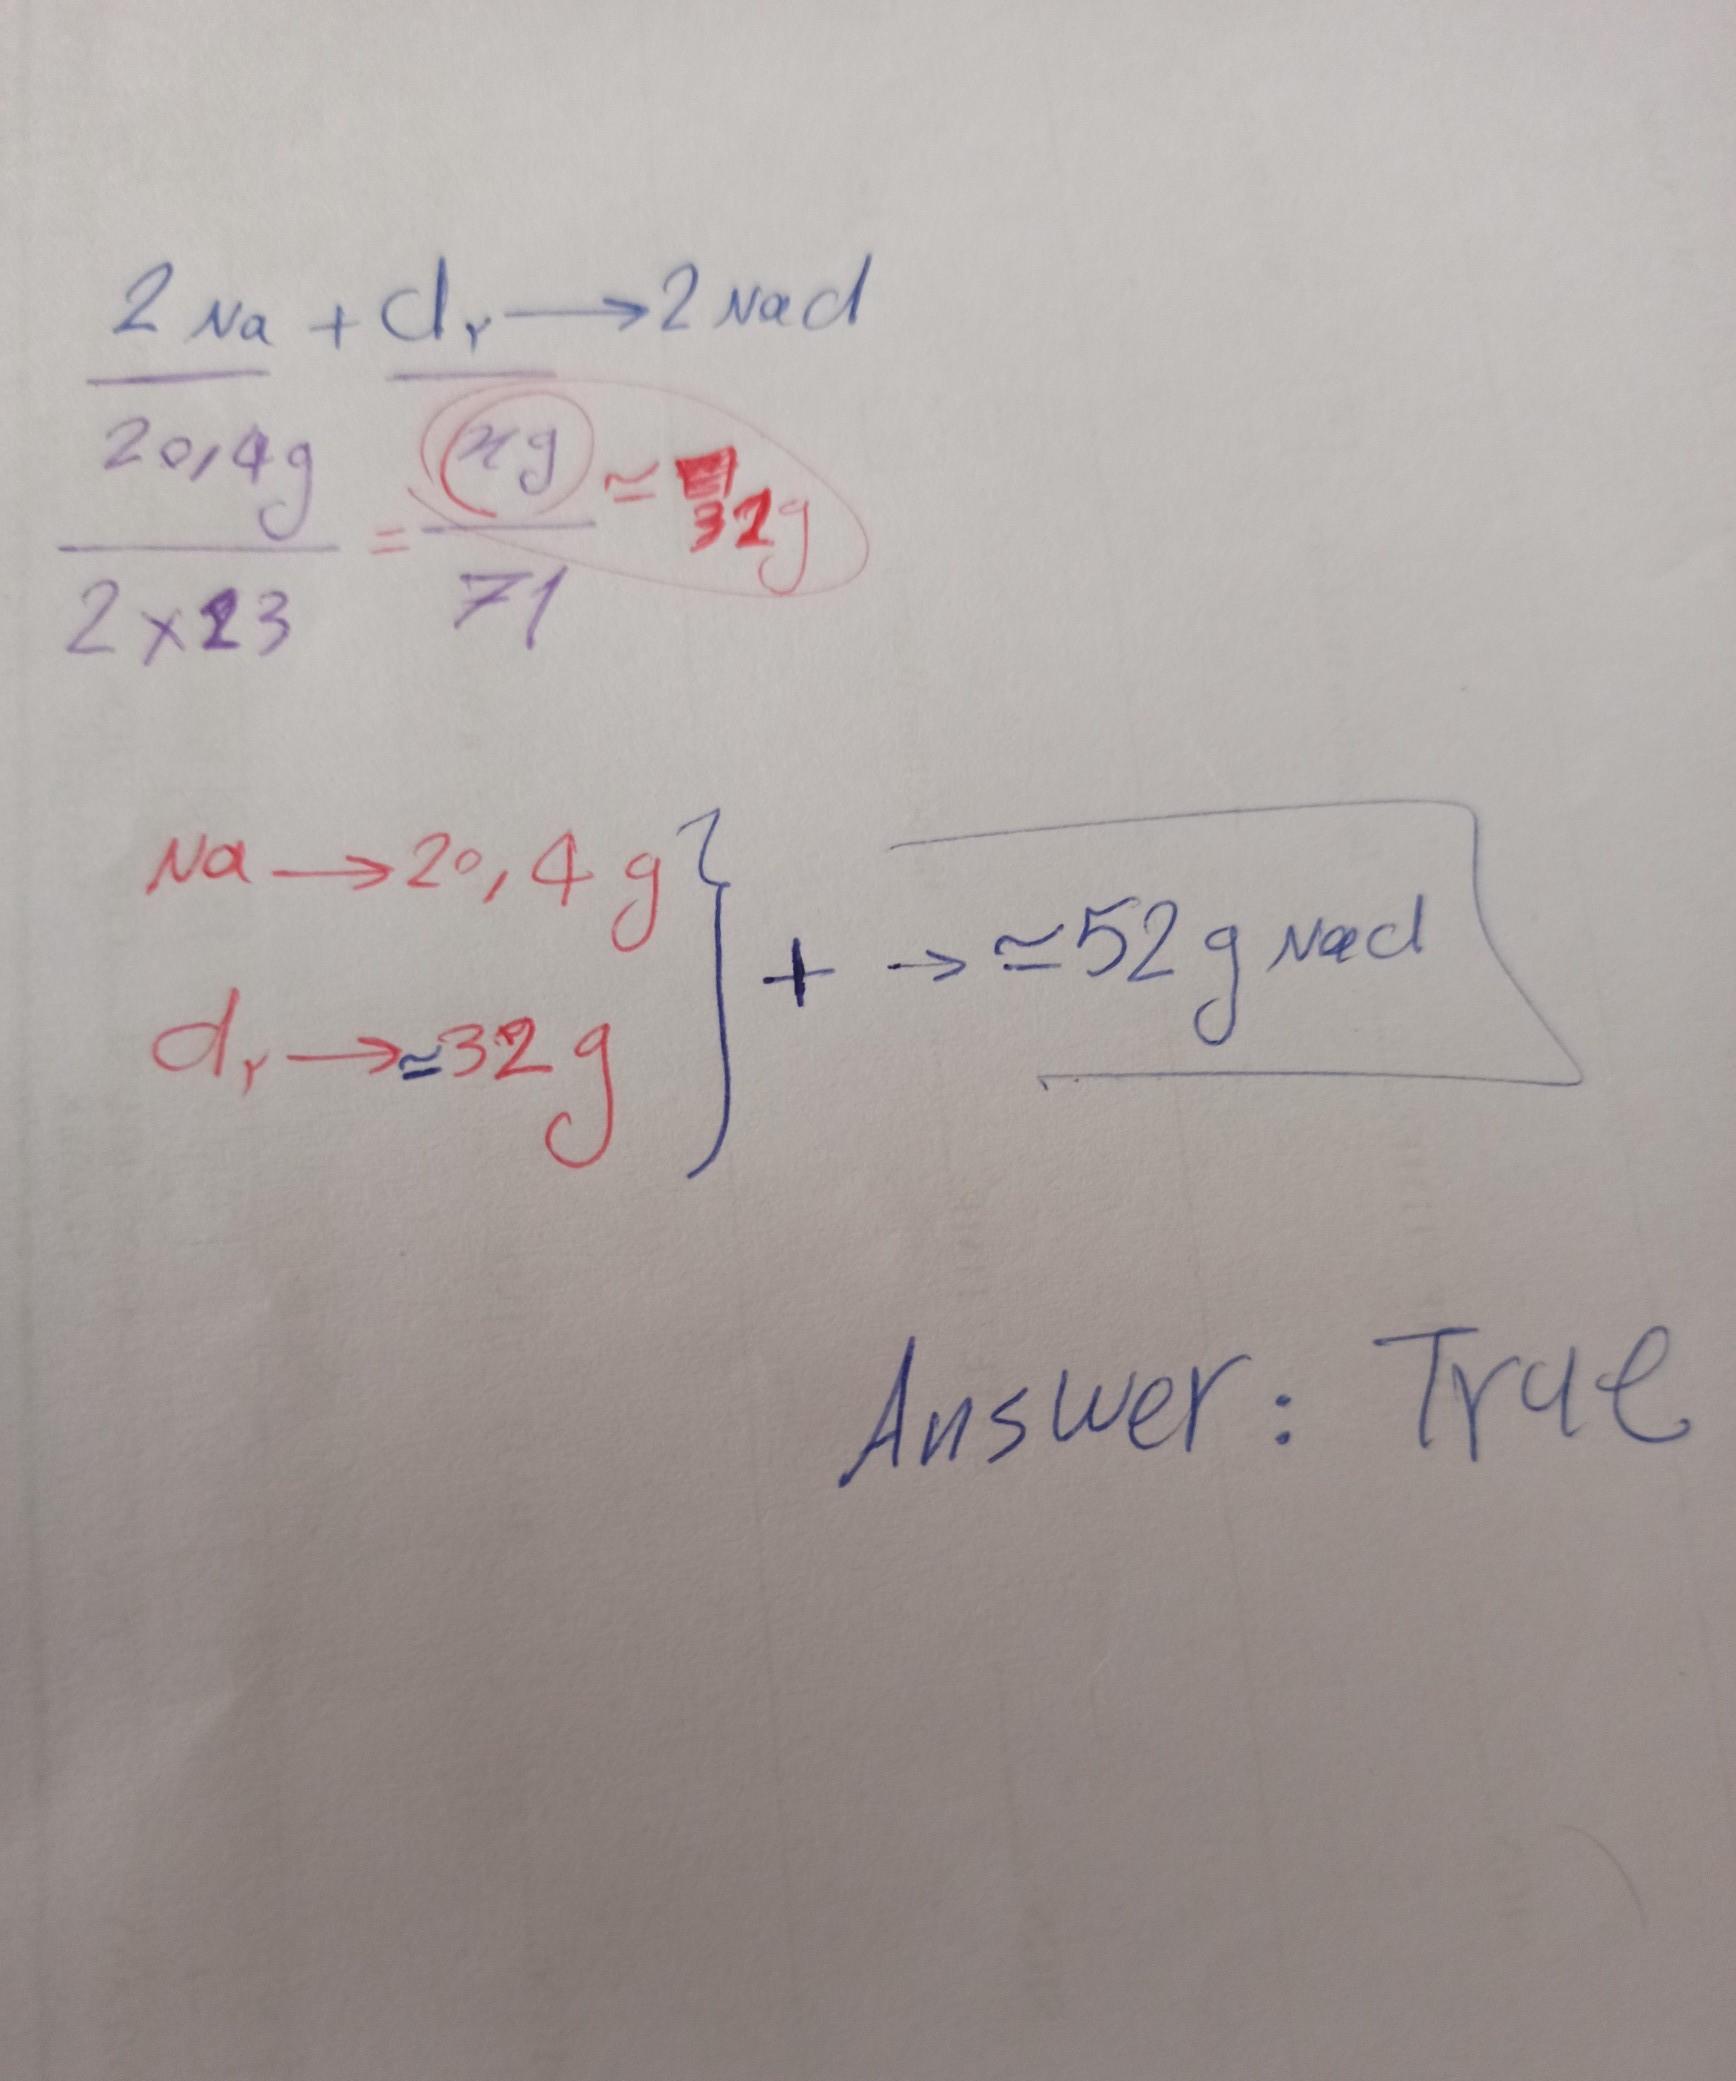 2 Na + Cl۲ → 2 NaCl
20,4g / 2×23 = xg / 71 ≃ 32g
Na → 20,4 g
Cl۲ → ≃32 g
+ → ≃52 g NaCl
Answer: True